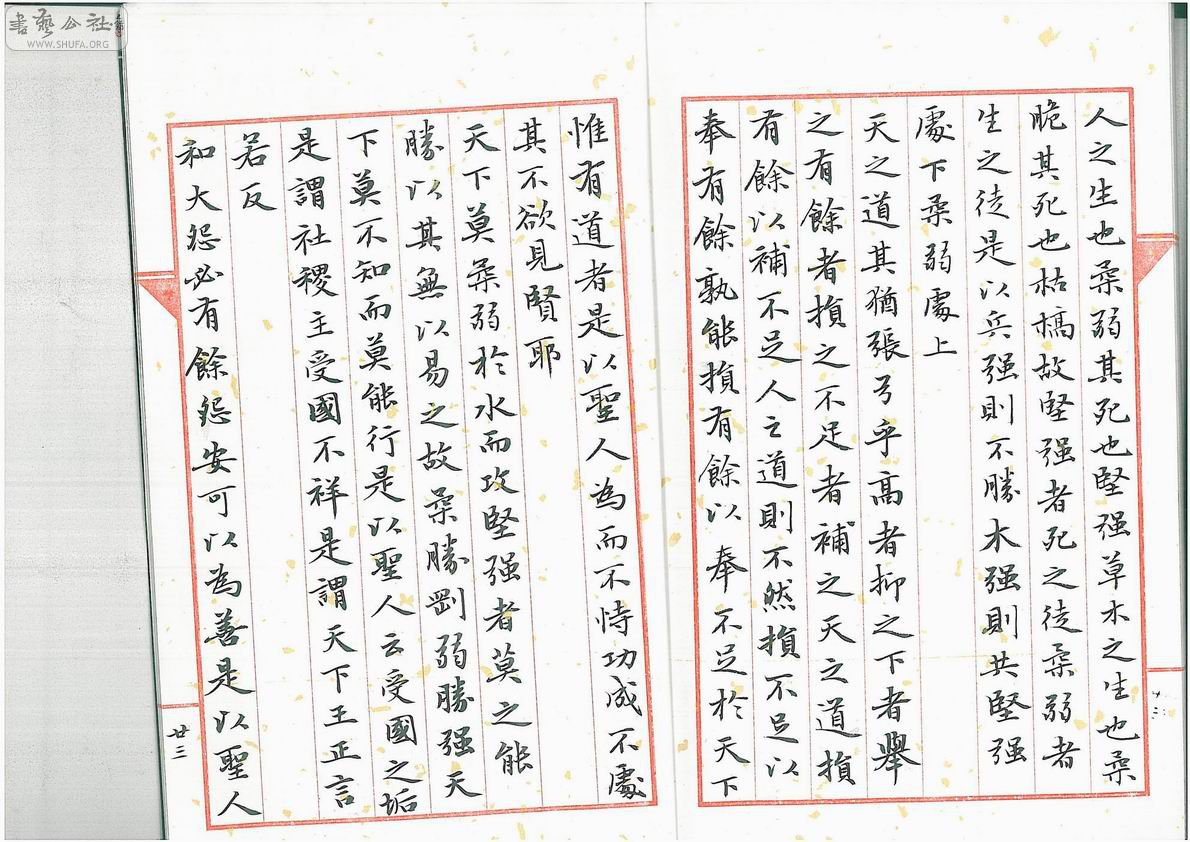 書藝公社
WWW.SHUFA.ORG
人之生也柔弱其死也堅强草木之生也柔
脆其死也枯槁故堅强者死之徒柔弱者
生之徒是以兵强則不勝木强則共堅强
處下柔弱處上
天之道其猶張弓乎高者抑之下者舉
之有餘者損之不足者補之天之道損
有餘以補不足人之道則不然損不足以
奉有餘孰能損有餘以奉不足於天下
惟有道者是以聖人為而不恃功成不處
其不欲見賢耶
天下莫柔弱於水而攻堅强者莫之能
勝以其無以易之故柔勝剛弱勝强天
下莫不知而莫能行是以聖人云受國之垢
是謂社稷主受國不祥是謂天下王正言
若反
和大怨必有餘怨安可以為善是以聖人
廿三